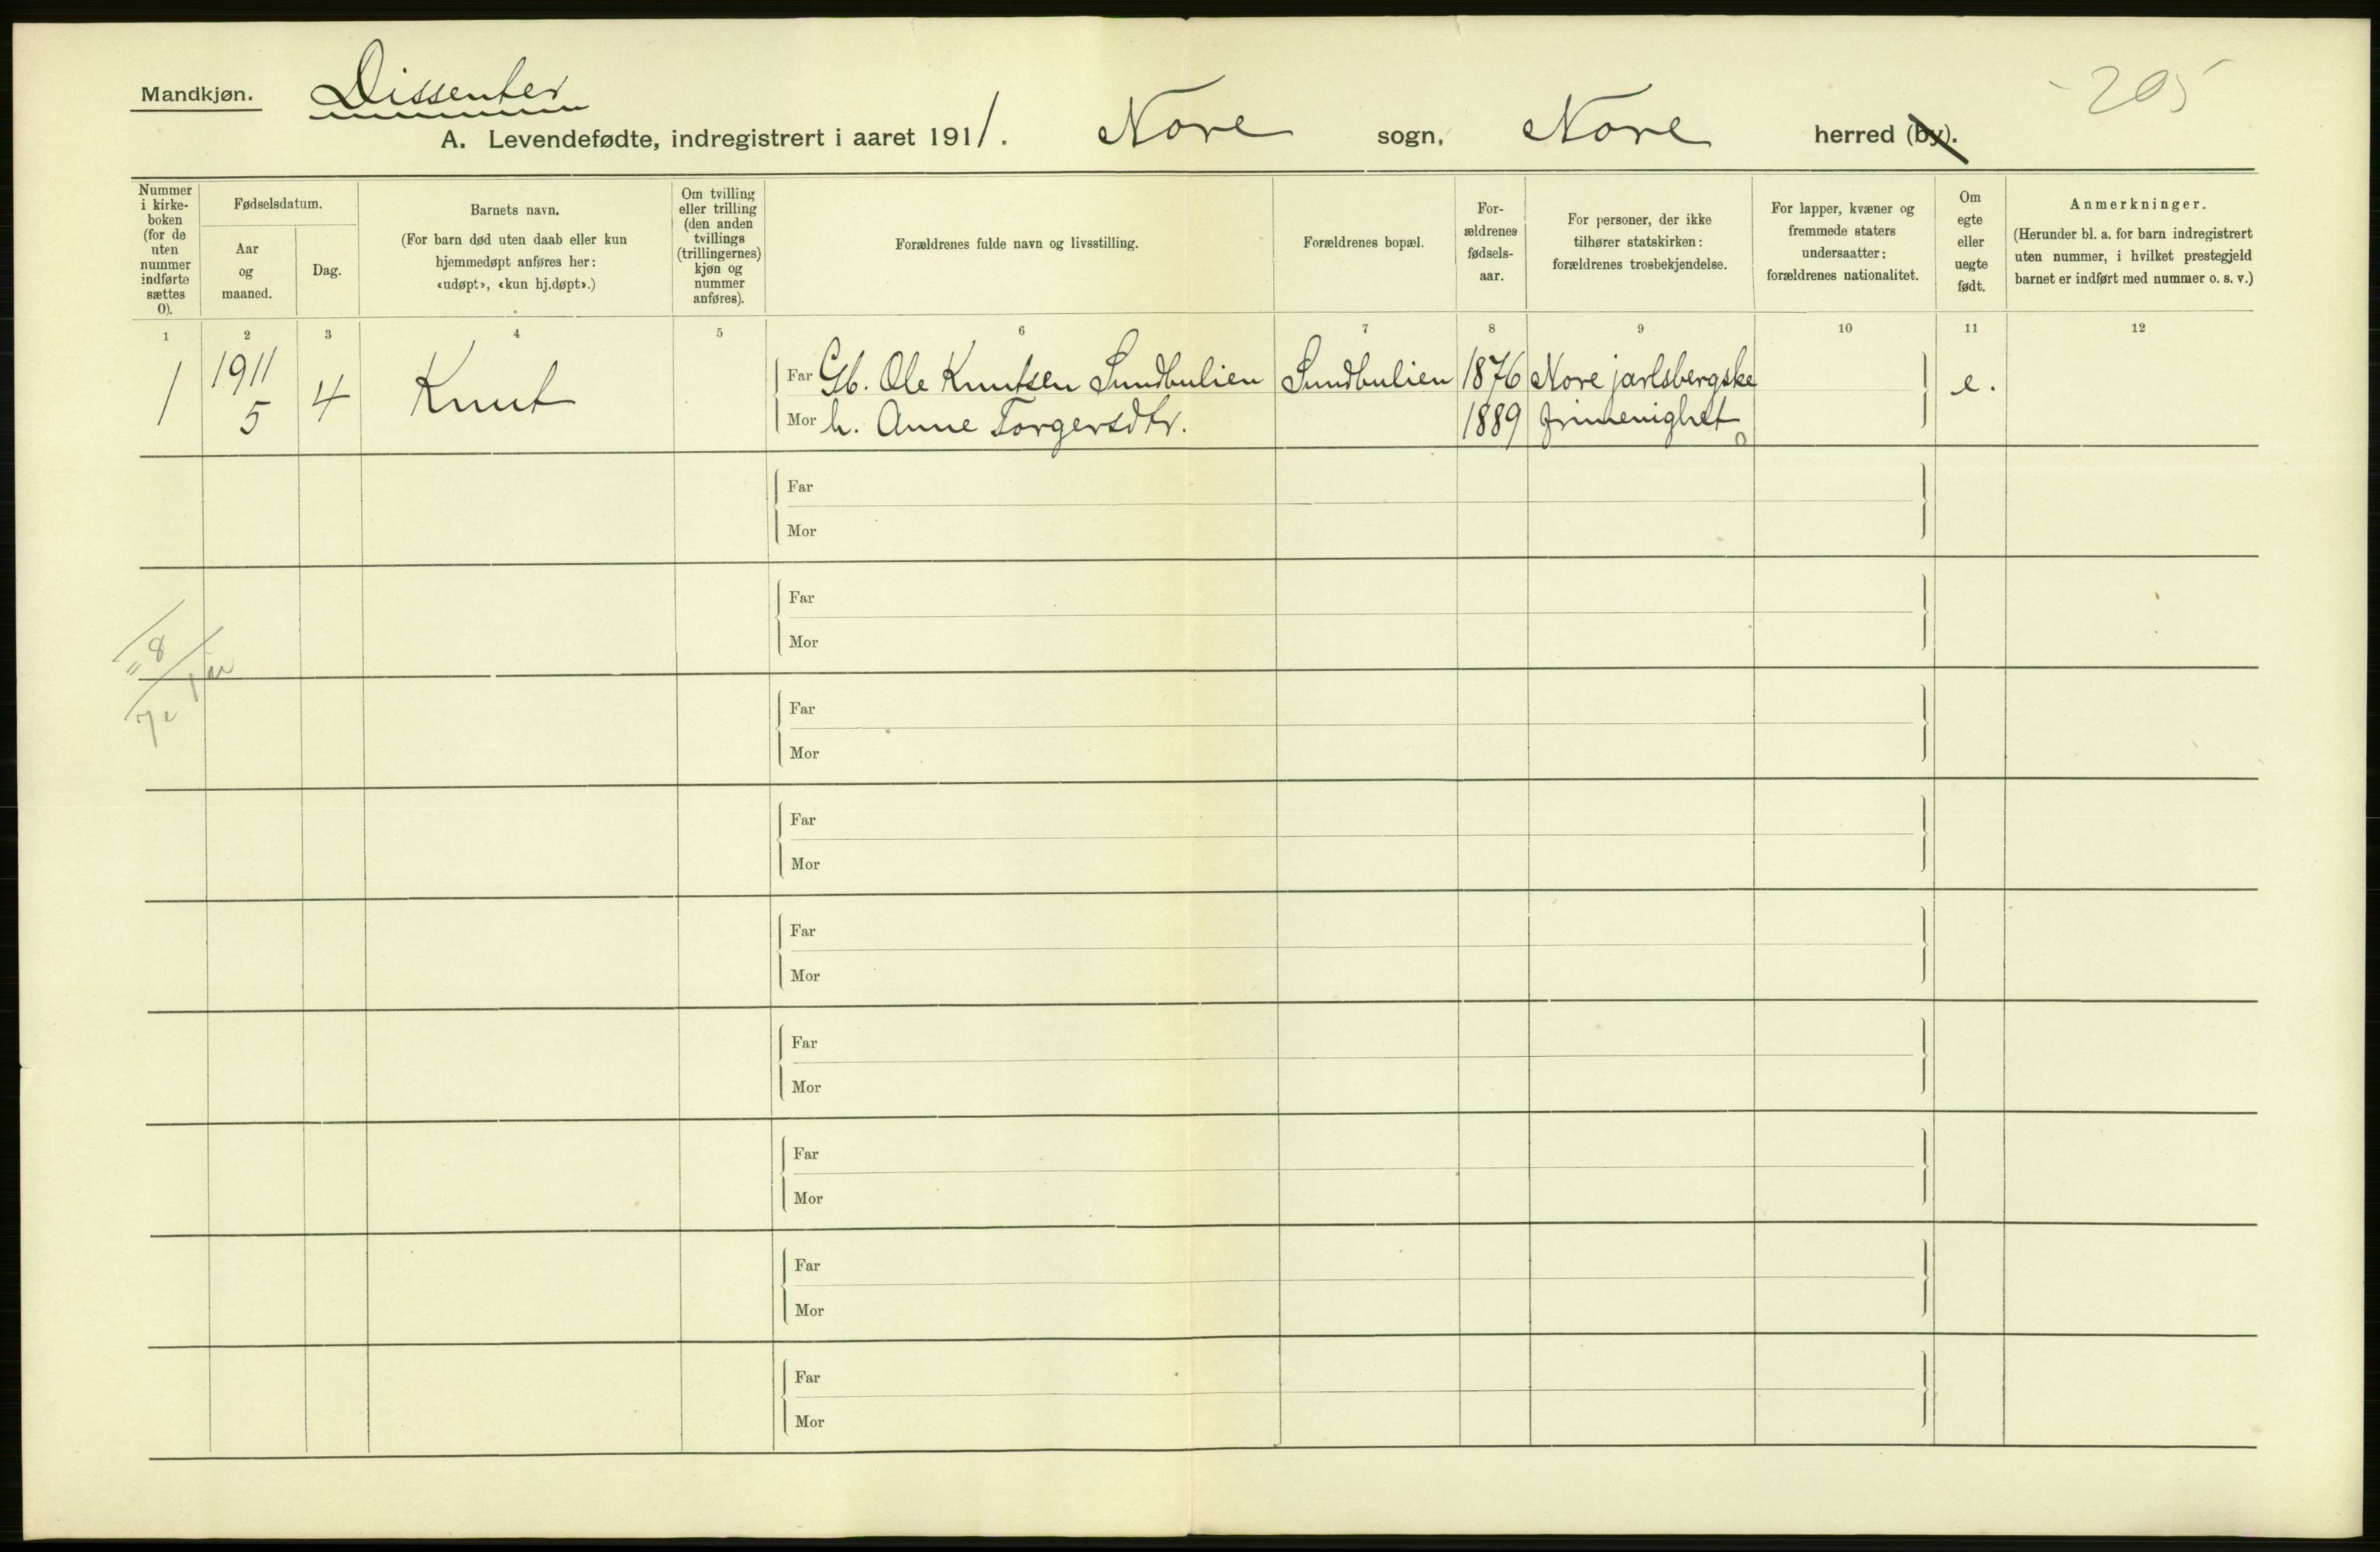 Mandkjøn. Dissenter
205
A. Levendefødte, indregistrert i aaret 1911. Nore sogn, Nore herred (by).
Nummer i kirke-boken (for de uten nummer indførte sættes 0).
Fødselsdatum.
Aar og maaned.
Dag.
Barnets navn.
(For barn død uten daab eller kun hjemmedøpt anføres her: «udøpt», «kun hj.døpt».)
Om tvilling eller trilling (den anden tvillings (trillingernes) kjøn og nummer anføres).
Forældrenes fulde navn og livsstilling.
Forældrenes bopæl.
For-ældrenes fødsels-aar.
For personer, der ikke tilhører statskirken: forældrenes trosbekjendelse.
For lapper, kvæner og fremmede staters undersaatter: forældrenes nationalitet.
Om egte eller uegte født.
Anmerkninger.
(Herunder bl. a. for barn indregistrert uten nummer, i hvilket prestegjeld barnet er indført med nummer o. s. v.)
1 2 3 4 5 6 7 8 9 10 11 12
1 1911 5 4 Knut Far Gb. Ole Knutsen Sundbulien Sundbulien 1876 Nore jarlsbergske e.
Mor h. Anne Torgersdtr. 1889 frimenighet
Far
Mor
Far
Mor
Far
Mor
Far
Mor
Far
Mor
Far
Mor
Far
Mor
Far
Mor
Far
Mor